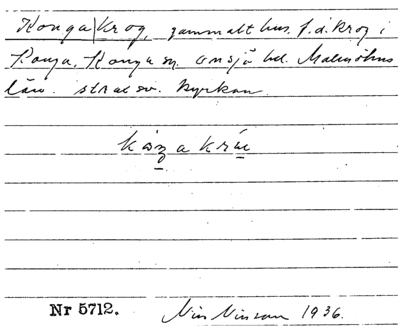 Konga|Krog, gammalt hus, f.d. krog i
Konga, Konga sn, Onsjö hd. Malmöhus
län. strax sv. kyrkan.
Nr 5712.
1936.